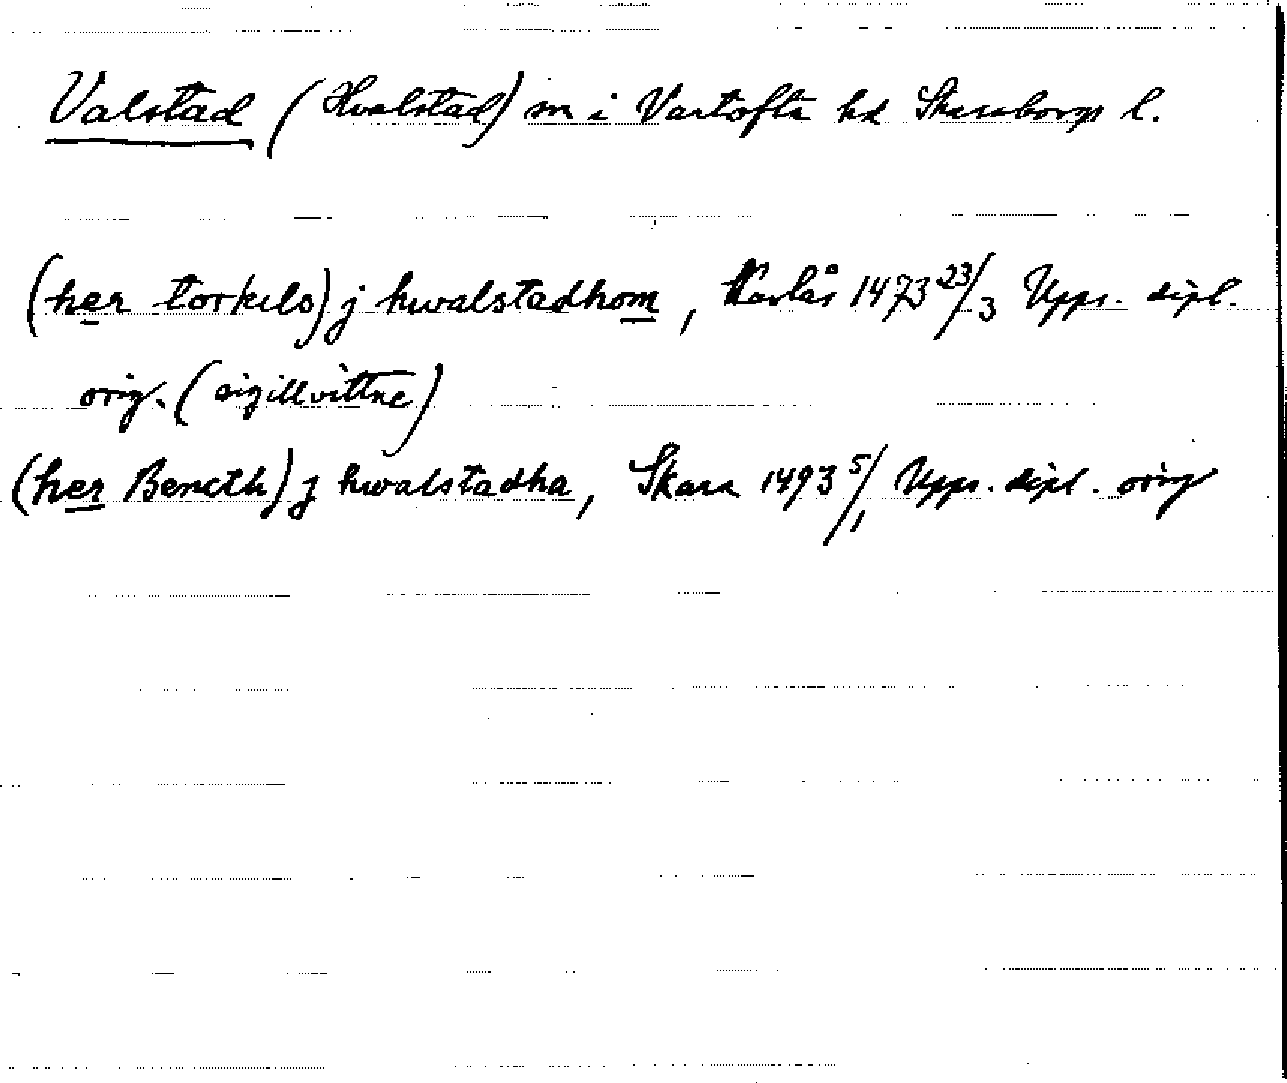 Valstad (Hvalstad) sn i Vartofta hd Skaraborgs l.
(her torkels) j hwalstadhom, Karlås 1473 23/3 Upps. dipl.
orig. (sigillvittne)
(her Bencth) j hwalstadha, Skara 1493 5/1 Upps. dipl. orig